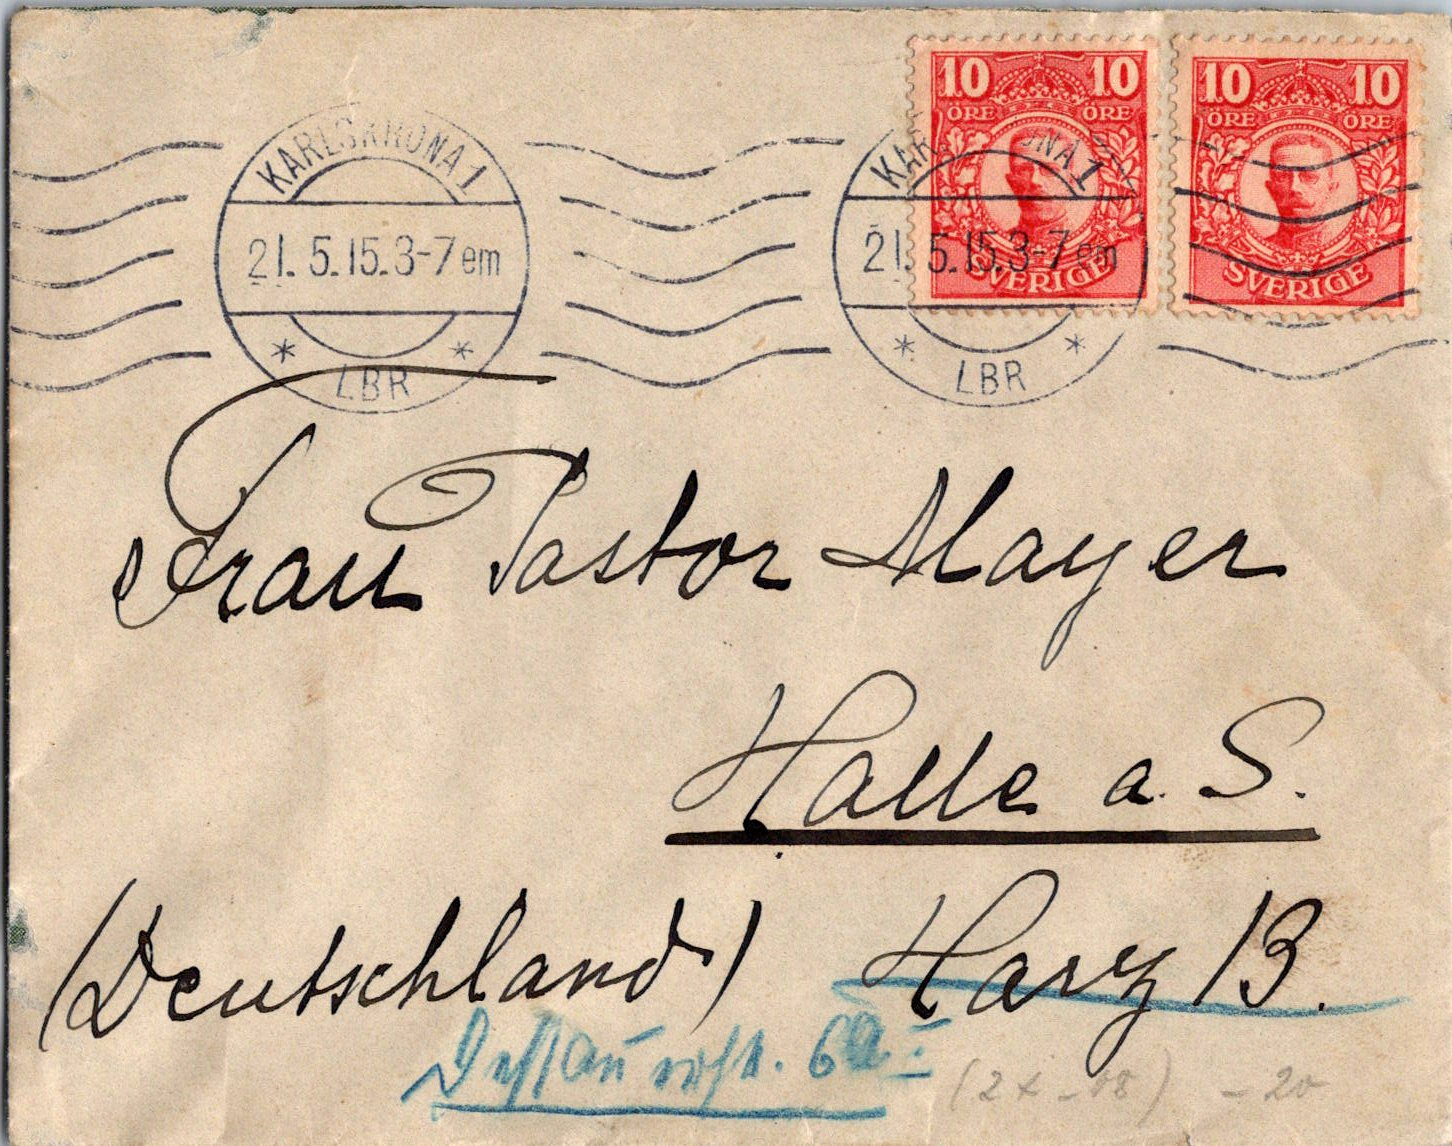 10 10
ÖRE ÖRE
SVERIGE
10 10
ÖRE ÖRE
SVERIGE
KARLSKRONA 1
21. 5. 15. 3-7 em
* LBR *
KARLSKRONA 1
21. 5. 15. 3-7 em
* LBR *
Frau Pastor Mayer
Halle a. S.
(Deutschland) Harz 13.
Dessauerstr. 6a I
(2 x -08) -20